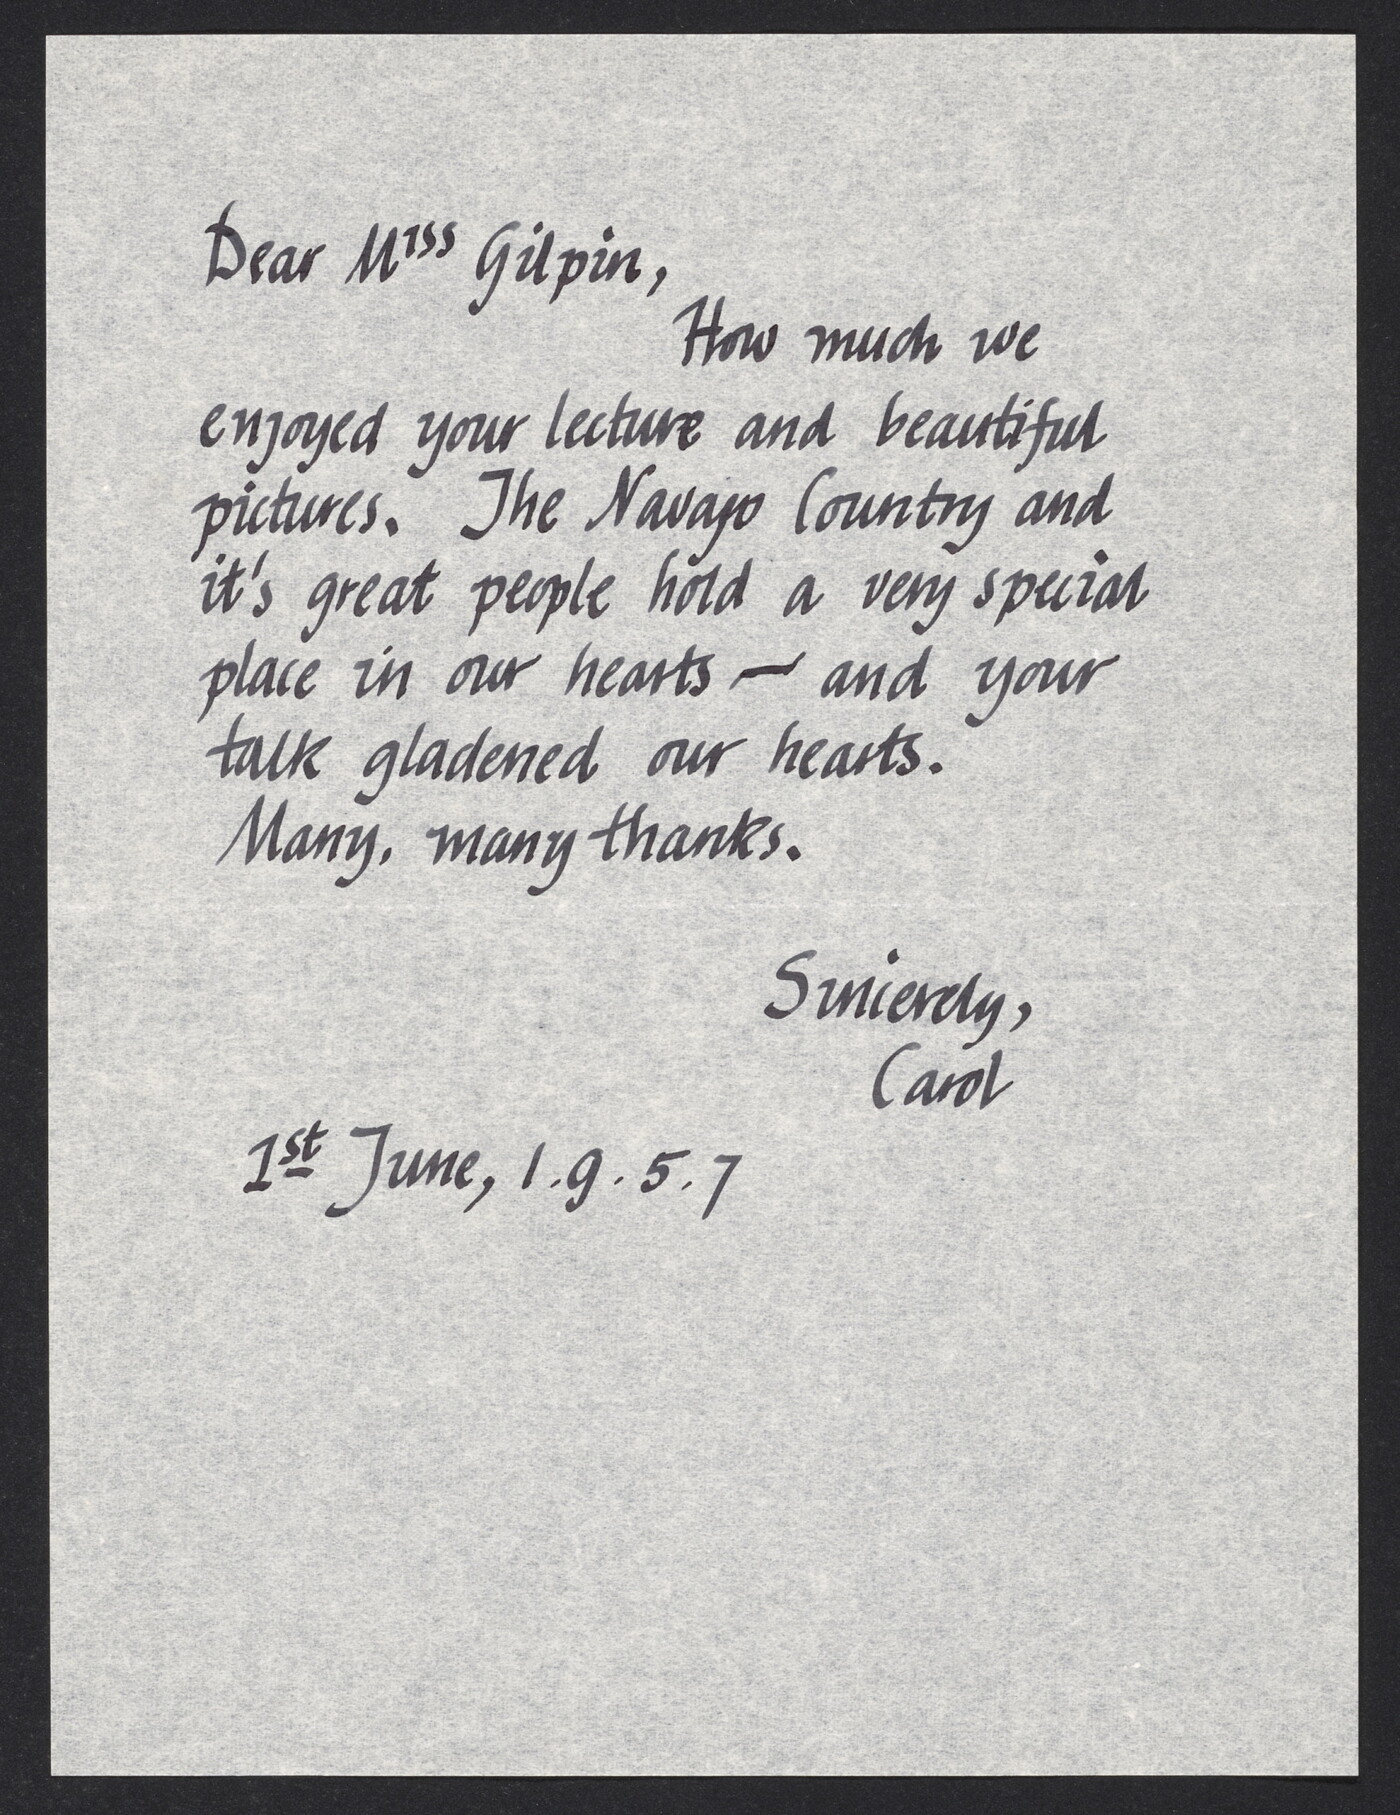 Dear Miss Gilpin,
How much we
enjoyed your lecture and beautiful
pictures. The Navajo Country and
it's great people hold a very special
place in our hearts — and your
talk gladened our hearts.
Many, many thanks.
Sincerely,
Carol
1st June, 1.9.5.7